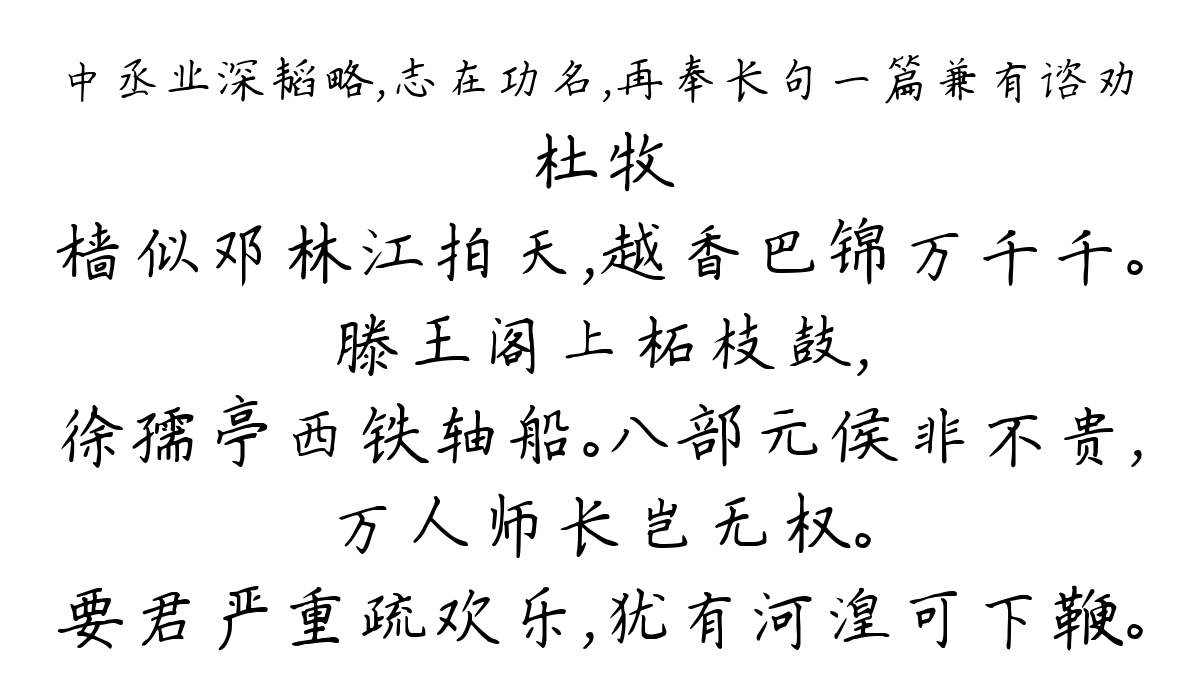 中丞业深韬略,志在功名,再奉长句一篇兼有谘劝
杜牧
樯似邓林江拍天,越香巴锦万千千。
滕王阁上柘枝鼓,
徐孺亭西铁轴船。八部元侯非不贵,
万人师长岂无权。
要君严重疏欢乐,犹有河湟可下鞭。